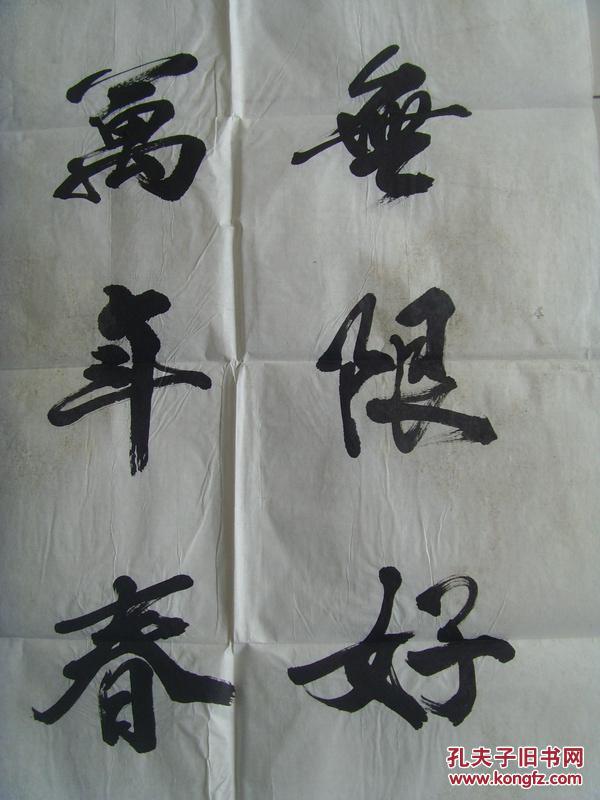 無限好
萬年春
孔夫子旧书网
www.kongfz.com